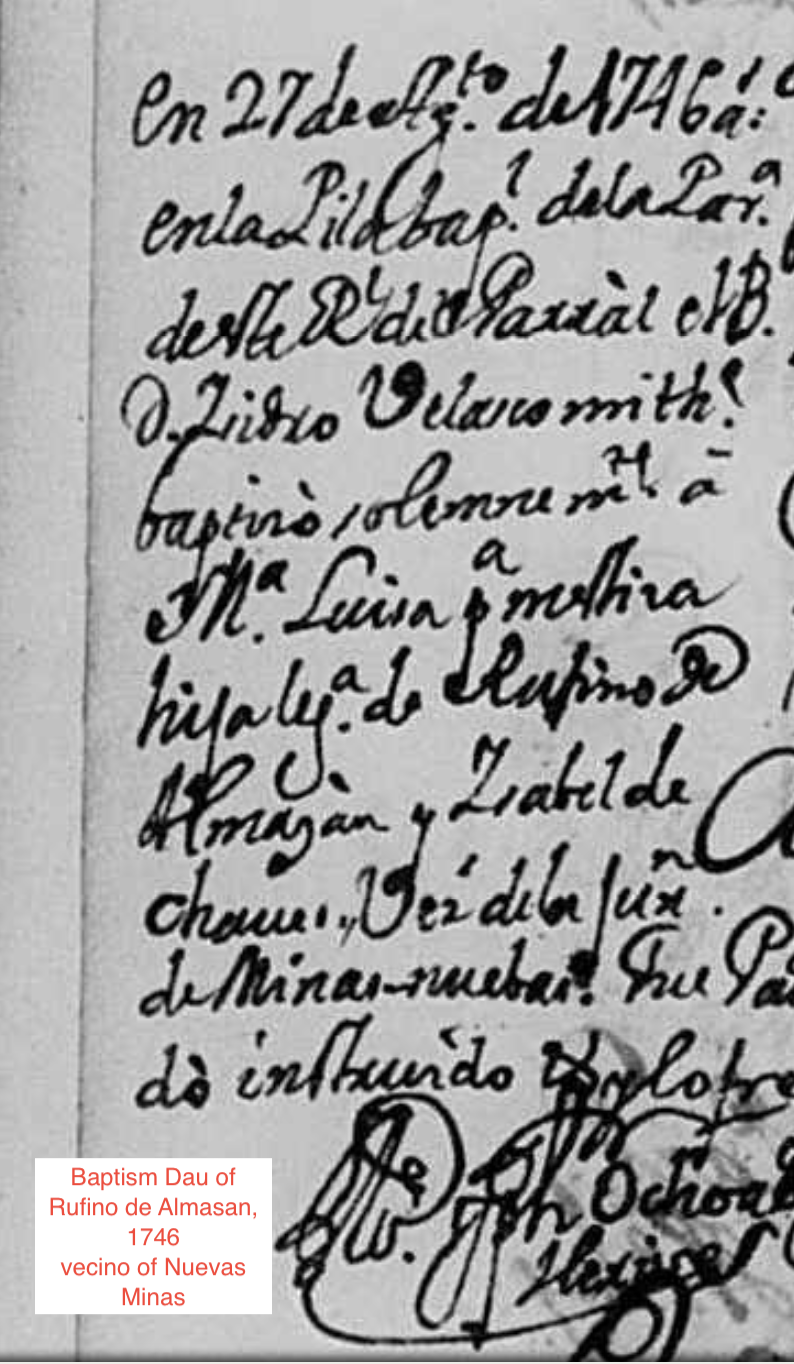 En 27 de Ag.to de 1746 a:
en la Pila bap.l de la Par.a
deste R.l del Parràl el B.
D. Izidro Velasco mi th.e
baptizò solemnem.te a
M.a Luisa p.a mestiza
hija leg.a de Rufino de
Almazàn y Izabel de
chaues, Vez.s de la Jux.n
de Minas-nuebas. Fue Pa
dò instruido
Br. Ochoa
Baptism Dau of
Rufino de Almasan,
1746
vecino of Nuevas
Minas